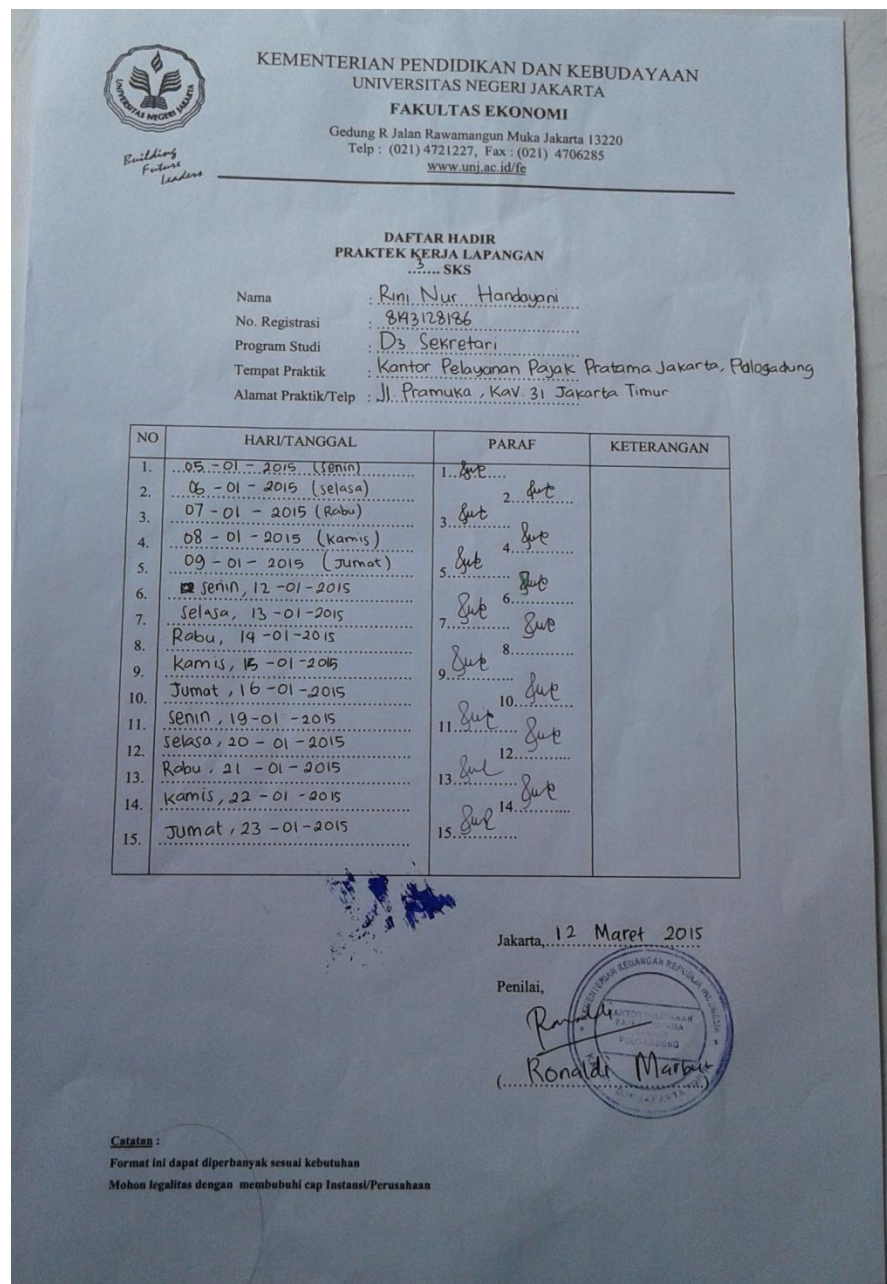 KEMENTERIAN PENDIDIKAN DAN KEBUDAYAAN
UNIVERSITAS NEGERI JAKARTA
FAKULTAS EKONOMI
Gedung R Jalan Rawamangun Muka Jakarta 13220
Telp : (021) 4721227, Fax : (021) 4706285
www.unj.ac.id/fe
UNIVERSITAS NEGERI JAKARTA
Building
Future
Leaders
DAFTAR HADIR
PRAKTEK KERJA LAPANGAN
..3.... SKS
Nama : Rini Nur Handayani
No. Registrasi : 8143128186
Program Studi : D3 Sekretari
Tempat Praktik : Kantor Pelayanan Pajak Pratama Jakarta, Pulogadung
Alamat Praktik/Telp : Jl. Pramuka, Kav. 31 Jakarta Timur
NO HARI/TANGGAL PARAF KETERANGAN
1. 05-01-2015 (Senin) 1.
2. 06-01-2015 (selasa) 2.
3. 07-01-2015 (Rabu) 3.
4. 08-01-2015 (Kamis) 4.
5. 09-01-2015 (Jumat) 5.
6. Senin, 12-01-2015 6.
7. Selasa, 13-01-2015 7.
8. Rabu, 14-01-2015 8.
9. Kamis, 15-01-2015 9.
10. Jumat, 16-01-2015 10.
11. Senin, 19-01-2015 11.
12. Selasa, 20-01-2015 12.
13. Rabu, 21-01-2015 13.
14. Kamis, 22-01-2015 14.
15. Jumat, 23-01-2015 15.
Jakarta, 12 Maret 2015
Penilai,
KEMENTERIAN KEUANGAN REPUBLIK INDONESIA
KANTOR PELAYANAN
(Ronaldi Marbun)
Catatan :
Format ini dapat diperbanyak sesuai kebutuhan
Mohon legalitas dengan membubuhi cap Instansi/Perusahaan